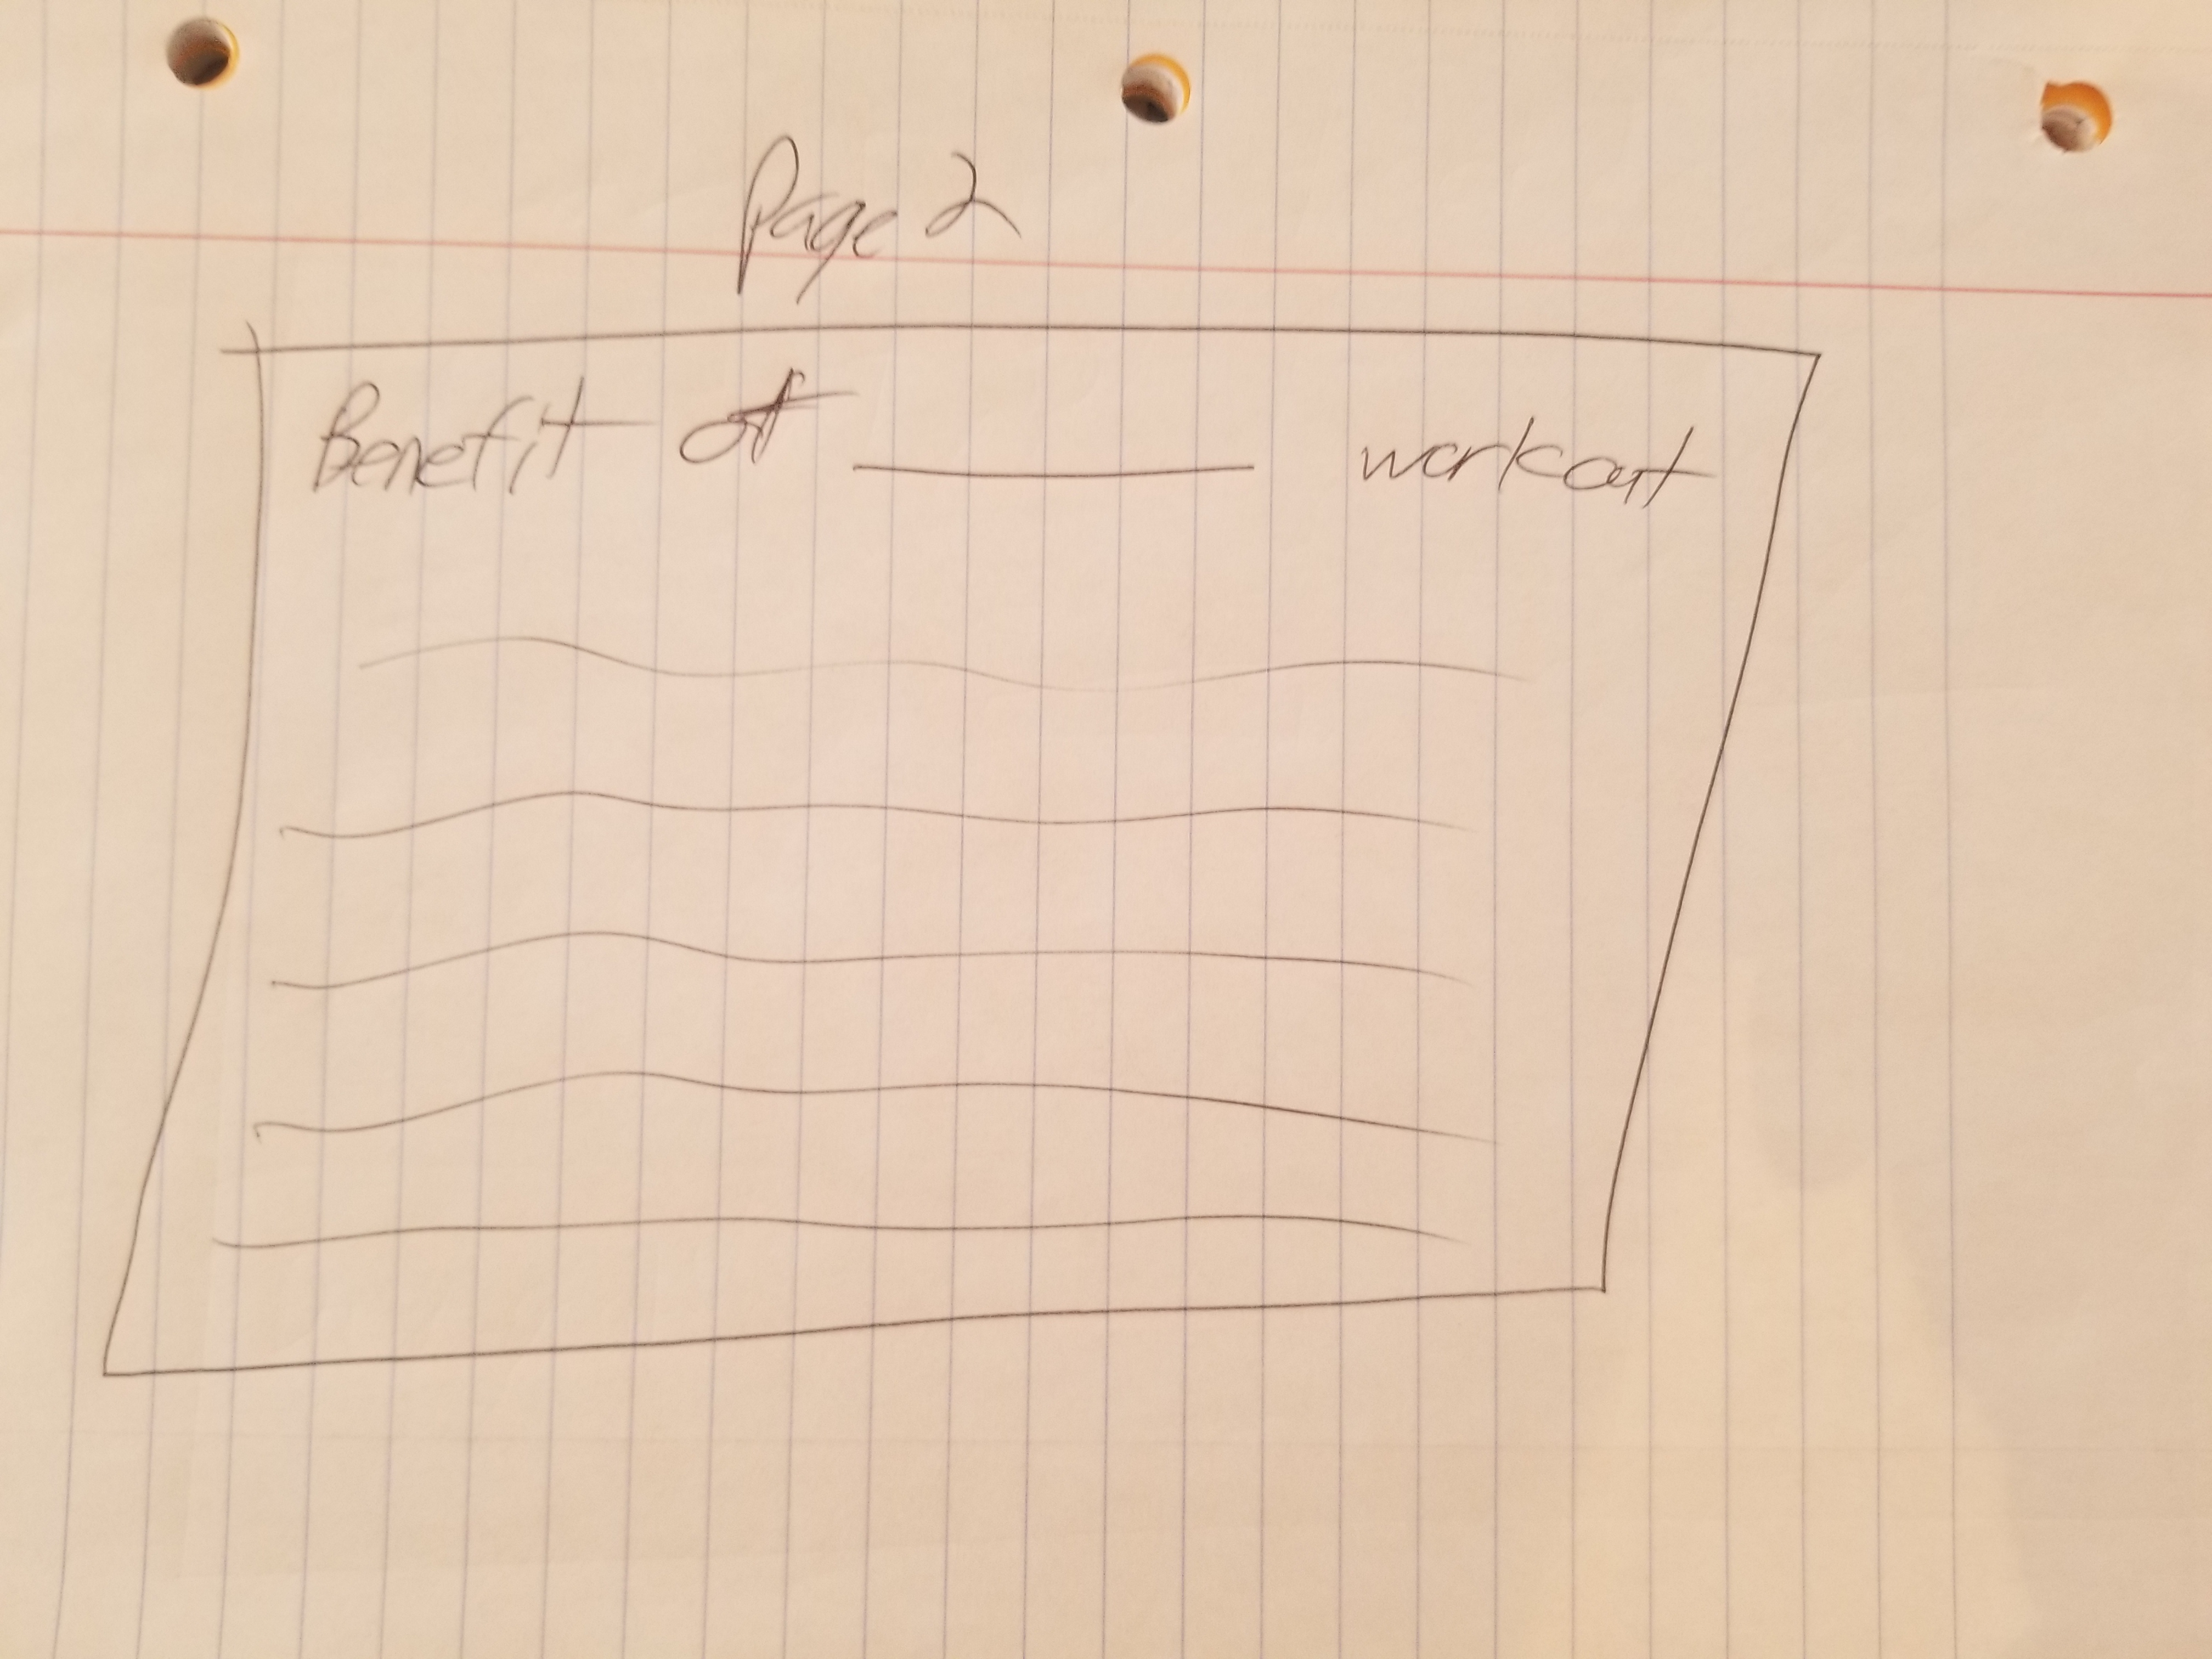 Page 2
Benefit of ________ workout